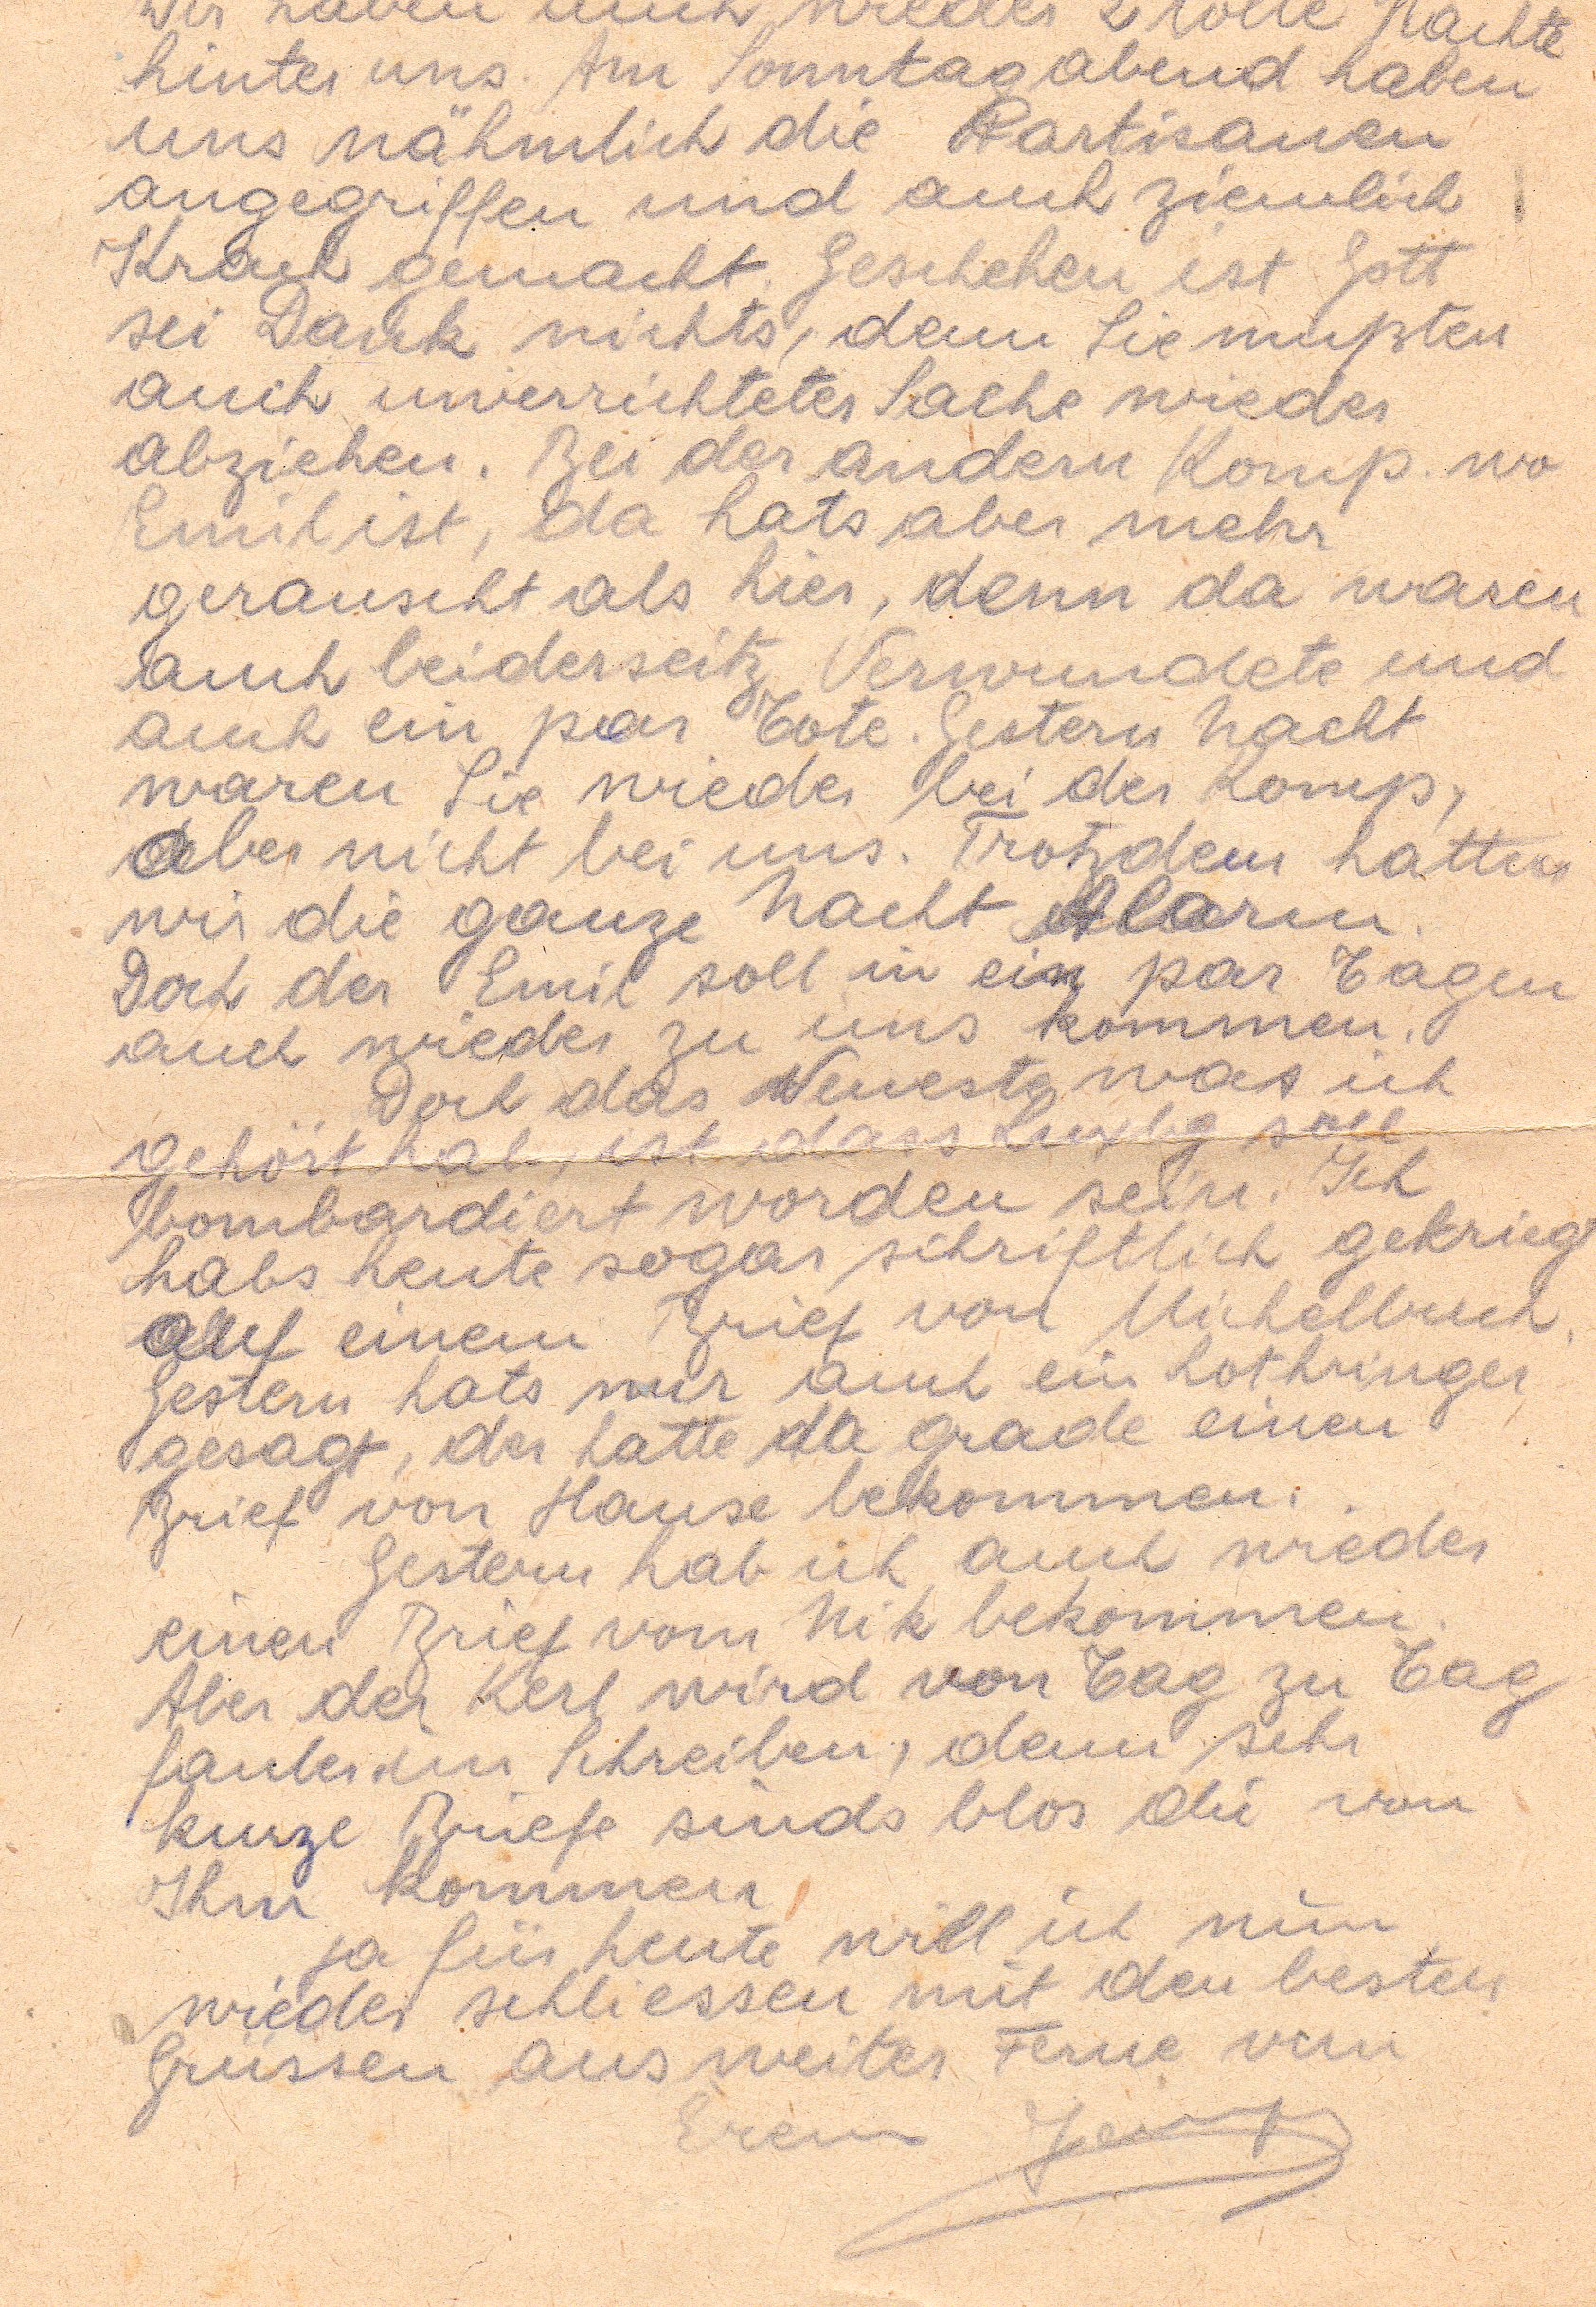 Wir haben auch wieder 2 tolle Nächte
hinter uns. Am Sonntagabend haben
uns nähmlich die Partisanen
angegriffen und auch ziemlich
Krach gemacht. Geschehen ist Gott
sei Dank nichts, denn Sie mußten
auch unverrichteter Sache wieder
abziehen. Bei der andern Komp. wo
Emil ist, da hats aber mehr
gerauscht als hier, denn da waren
auch beiderseitz Verwundete und
auch ein par Tote. Gestern Nacht
waren Sie wieder bei der Komp,
aber nicht bei uns. Trotzdem hatten
wir die ganze Nacht Alarm.
Doch der Emil soll in ein par Tagen
auch wieder zu uns kommen.
Doch das Neueste was ich
gehört hab, ist dass Luxbg soll
bombardiert worden sein. Ich
habs heute sogar schriftlich gekriegt
auf einem Brief von Michelbuch.
Gestern hats mir auch ein Lothringer
gesagt, der hatte da grade einen
Brief von Hause bekommen.
Gestern hab ich auch wieder
einen Brief vom Nik bekommen.
Aber der Kerl wird von Tag zu Tag
fauler im Schreiben, denn sehr
kurze Briefe sinds blos die von
Ihm kommen
Ja für heute will ich nun
wieder schliessen mit den besten
Grüssen aus weiter Ferne vun
Erem